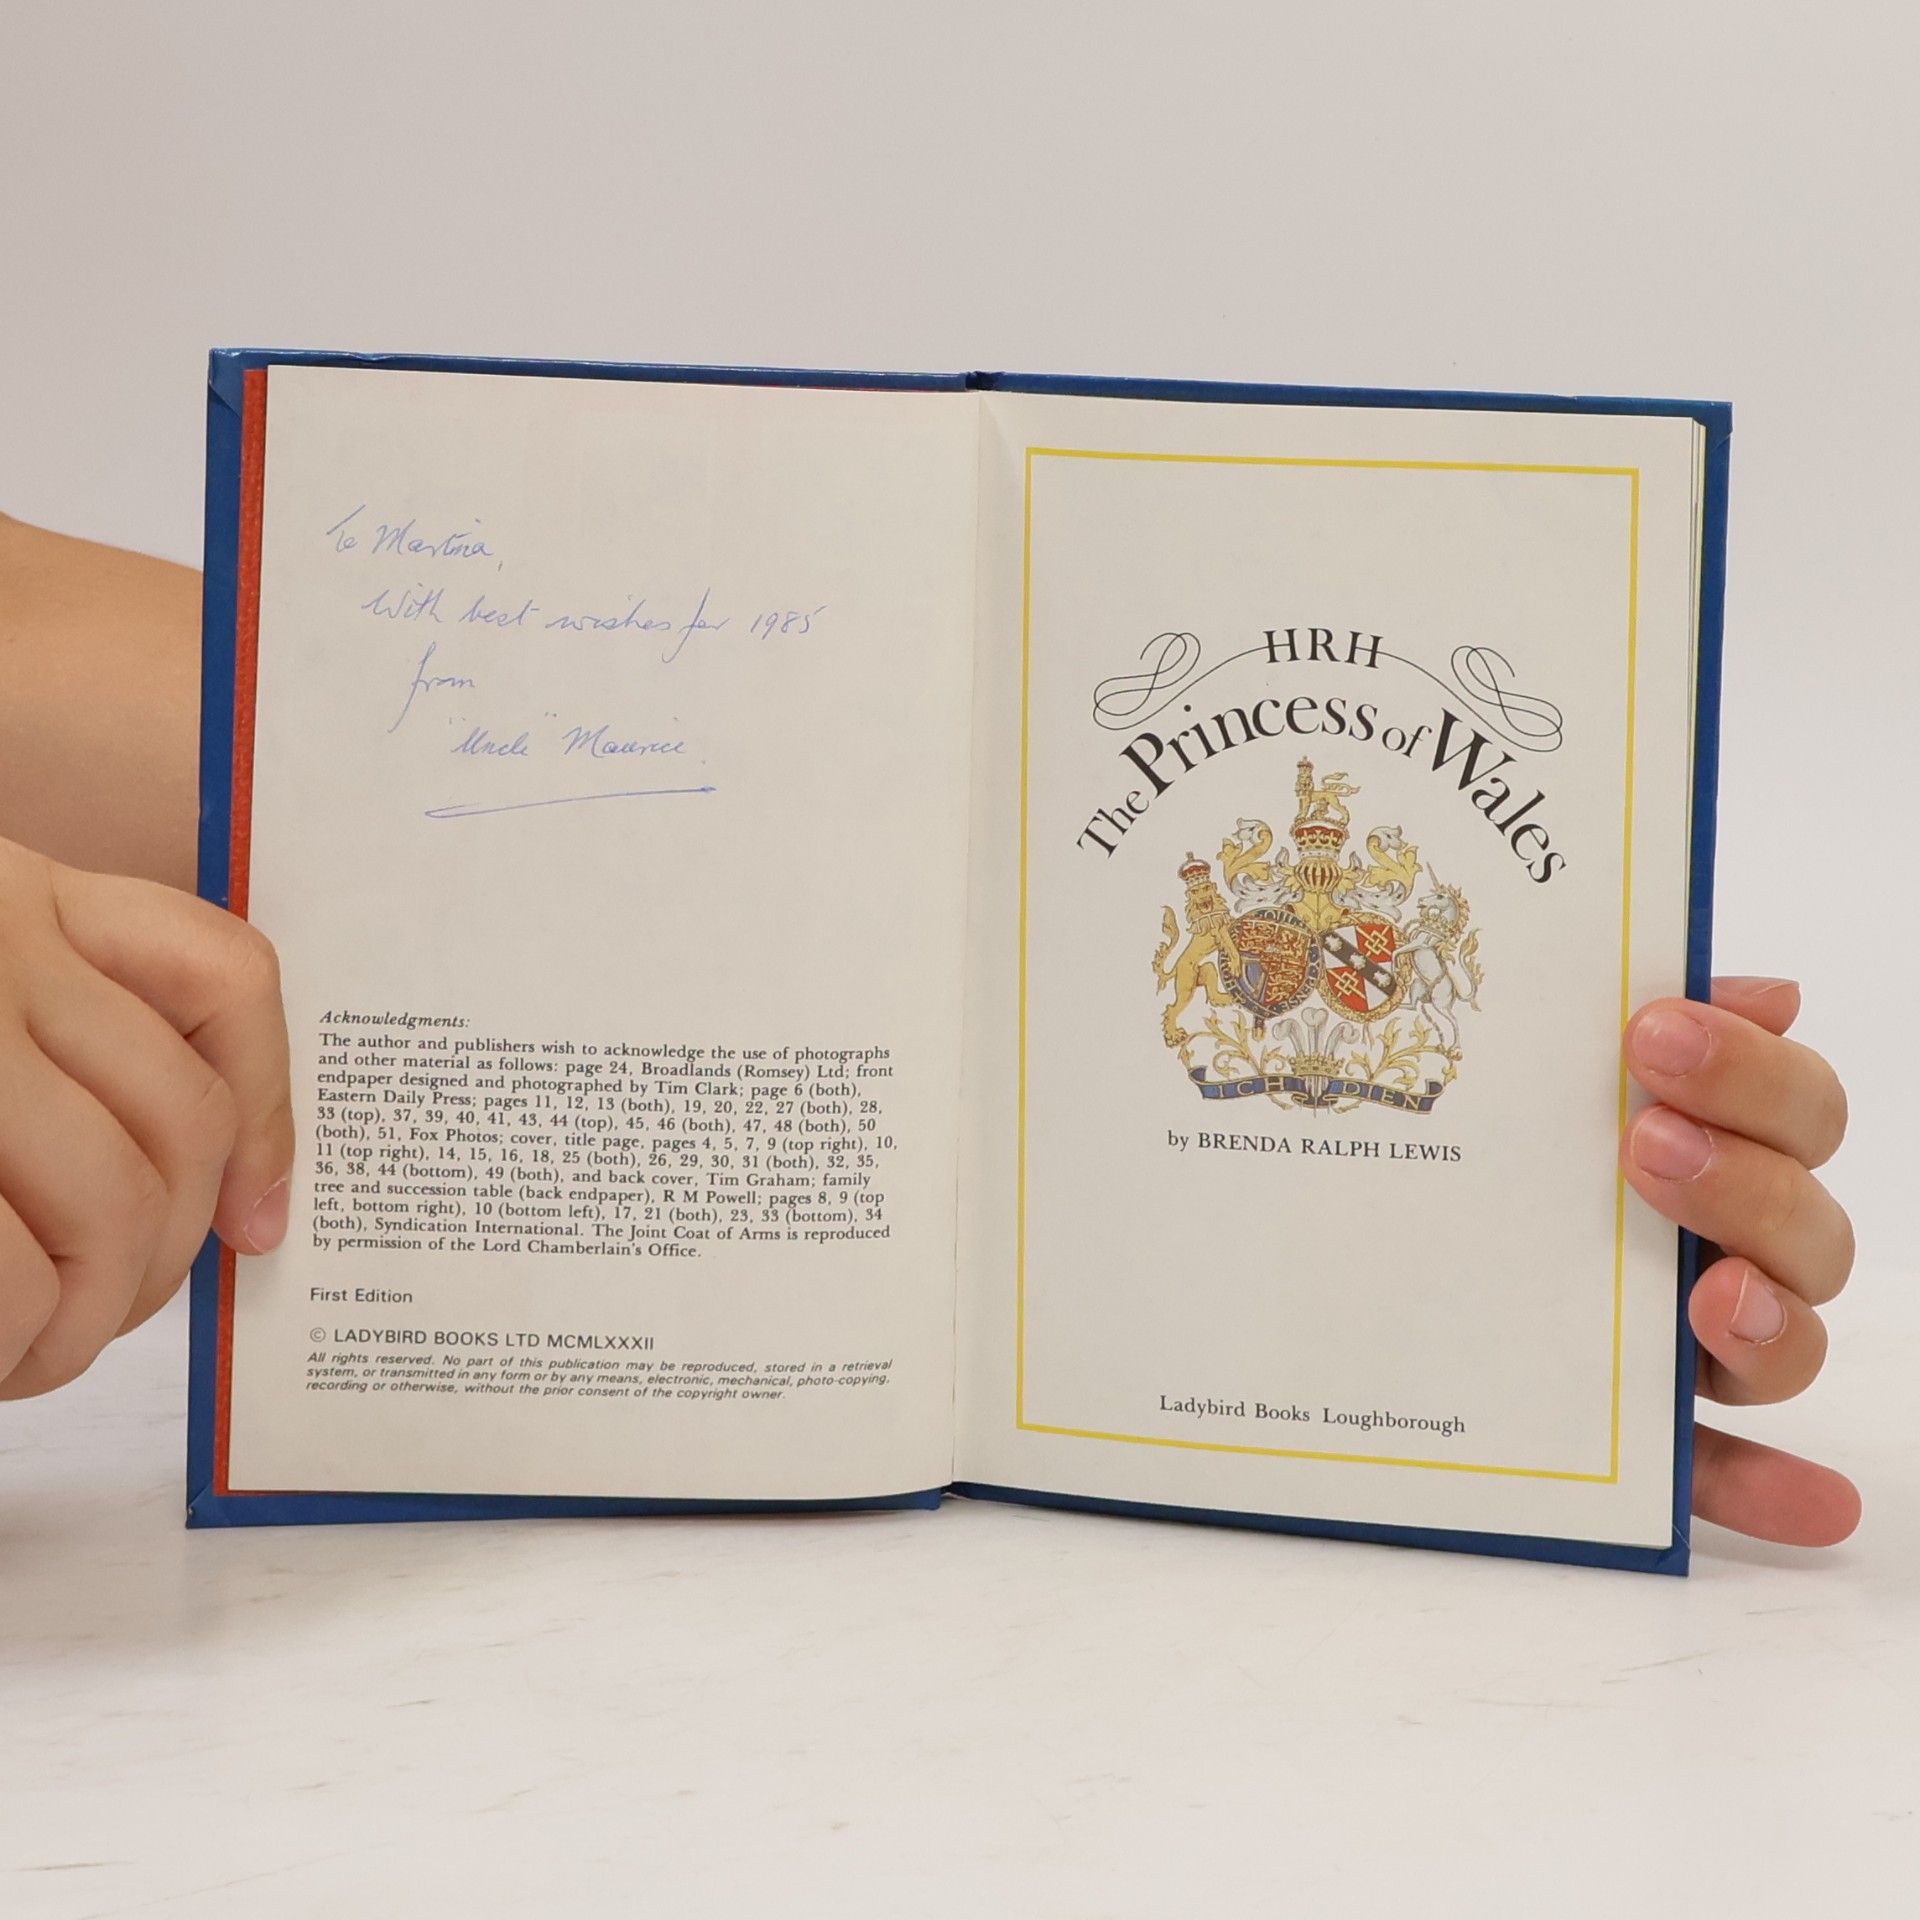 To Martina,
With best wishes for 1985
from
"Uncle" Maurice.
Acknowledgments:
The author and publishers wish to acknowledge the use of photographs
and other material as follows: page 24, Broadlands (Romsey) Ltd; front
endpaper designed and photographed by Tim Clark; page 6 (both),
Eastern Daily Press; pages 11, 12, 13 (both), 19, 20, 22, 27 (both), 28,
33 (top), 37, 39, 40, 41, 43, 44 (top), 45, 46 (both), 47, 48 (both), 50
(both), 51, Fox Photos; cover, title page, pages 4, 5, 7, 9 (top right), 10,
11 (top right), 14, 15, 16, 18, 25 (both), 26, 29, 30, 31 (both), 32, 35,
36, 38, 44 (bottom), 49 (both), and back cover, Tim Graham; family
tree and succession table (back endpaper), R M Powell; pages 8, 9 (top
left, bottom right), 10 (bottom left), 17, 21 (both), 23, 33 (bottom), 34
(both), Syndication International. The Joint Coat of Arms is reproduced
by permission of the Lord Chamberlain's Office.
First Edition
© LADYBIRD BOOKS LTD MCMLXXXII
All rights reserved. No part of this publication may be reproduced, stored in a retrieval
system, or transmitted in any form or by any means, electronic, mechanical, photo-copying,
recording or otherwise, without the prior consent of the copyright owner.
HRH
The Princess of Wales
ICH DIEN
by BRENDA RALPH LEWIS
Ladybird Books Loughborough